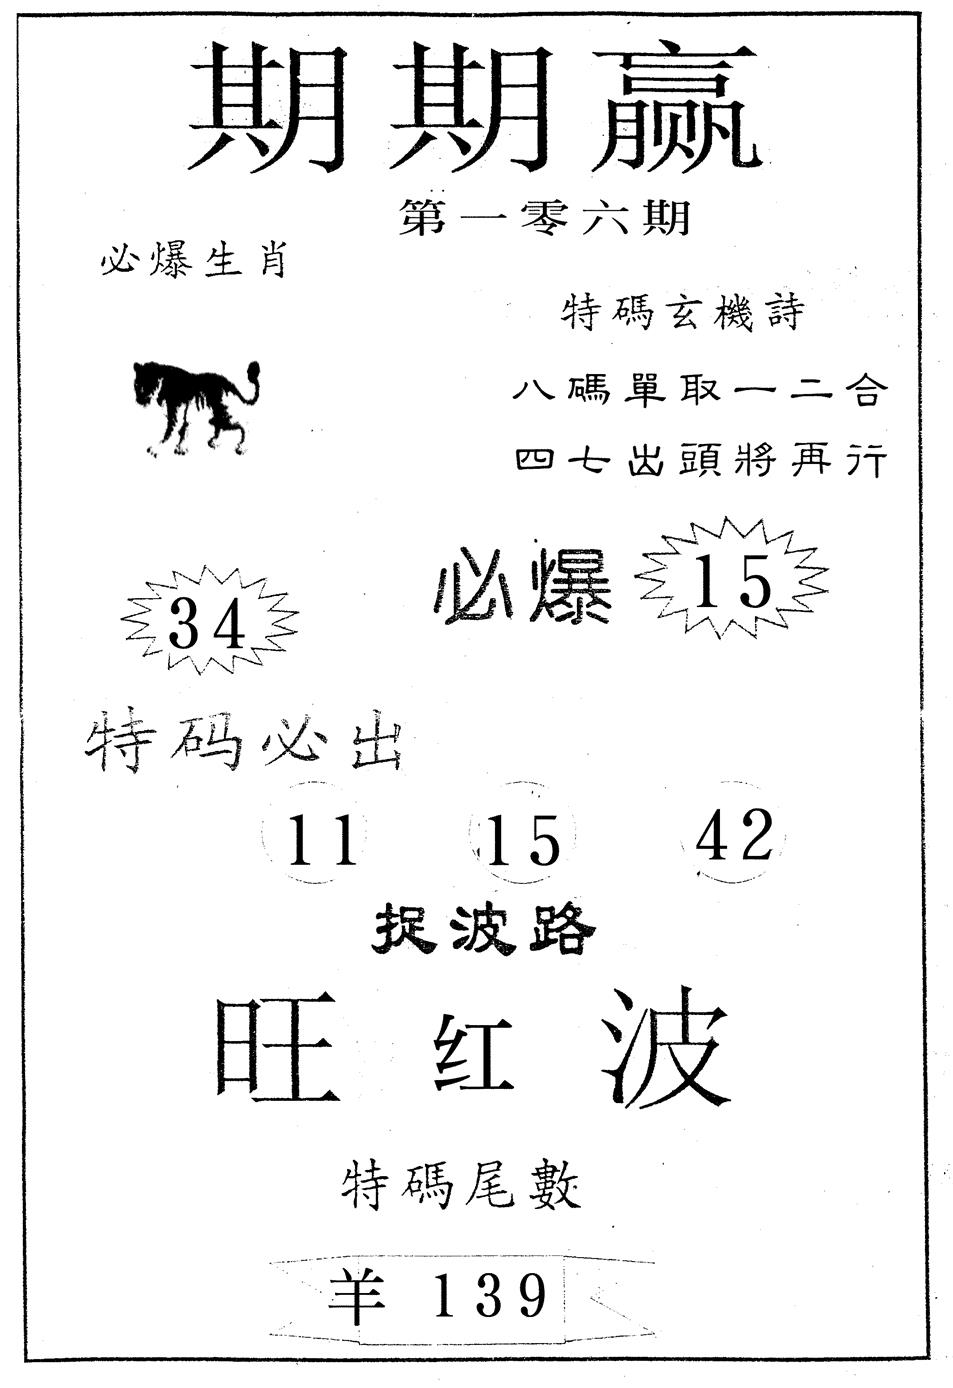 期期赢
第一零六期
必爆生肖
特碼玄機詩
八碼單取一二合
四七出頭將再行
必爆 15
34
特码必出
11 15 42
捉波路
旺红波
特碼尾數
羊 139